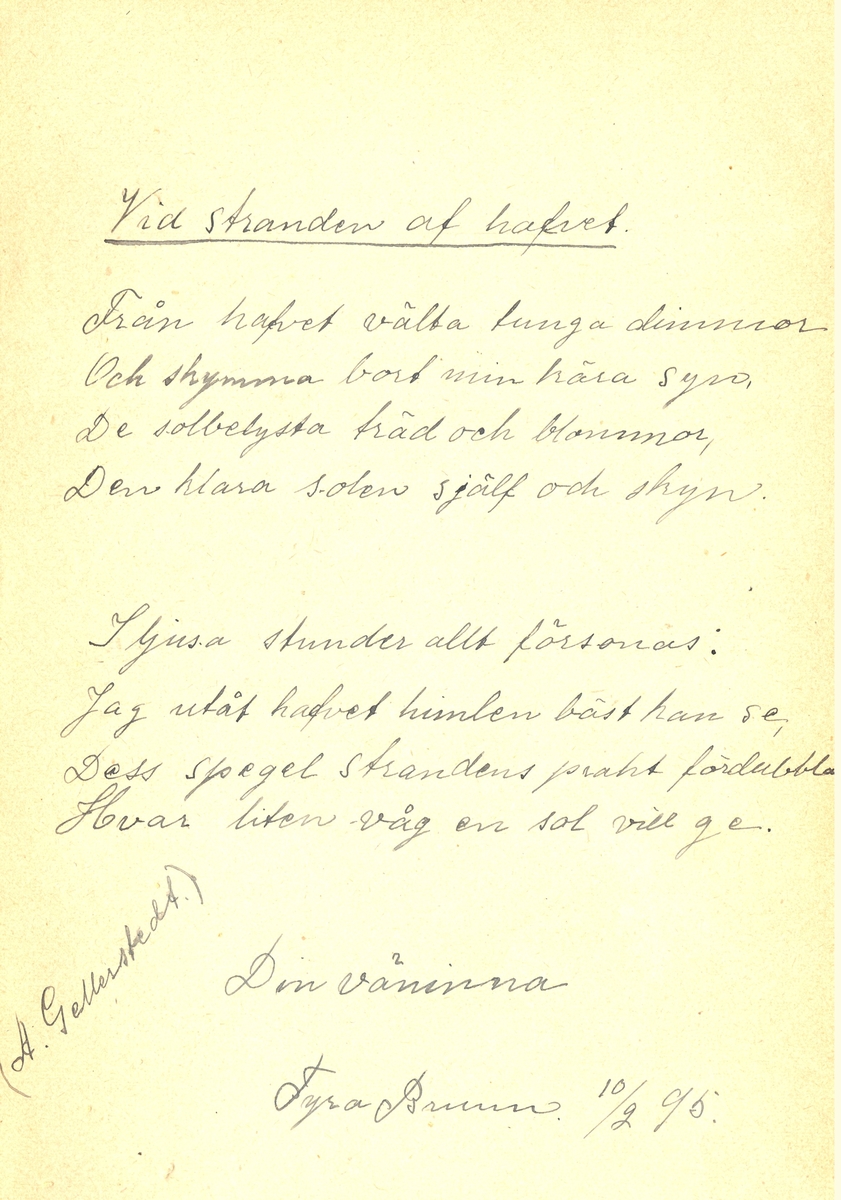 Vid stranden af hafvet.
Från hafvet välta tunga dimmor
Och skymma bort min kära syn,
De solbelysta träd och blommor,
Den klara solen själf och skyn.
I ljusa stunder allt försonas:
Jag utåt hafvet himlen bäst kan se,
Dess spegel strandens prakt fördubbla
Hvar liten våg en sol vill ge.
(A. Gellerstedt.)
Din väninna
Tyra Bruun. 10/2 95.